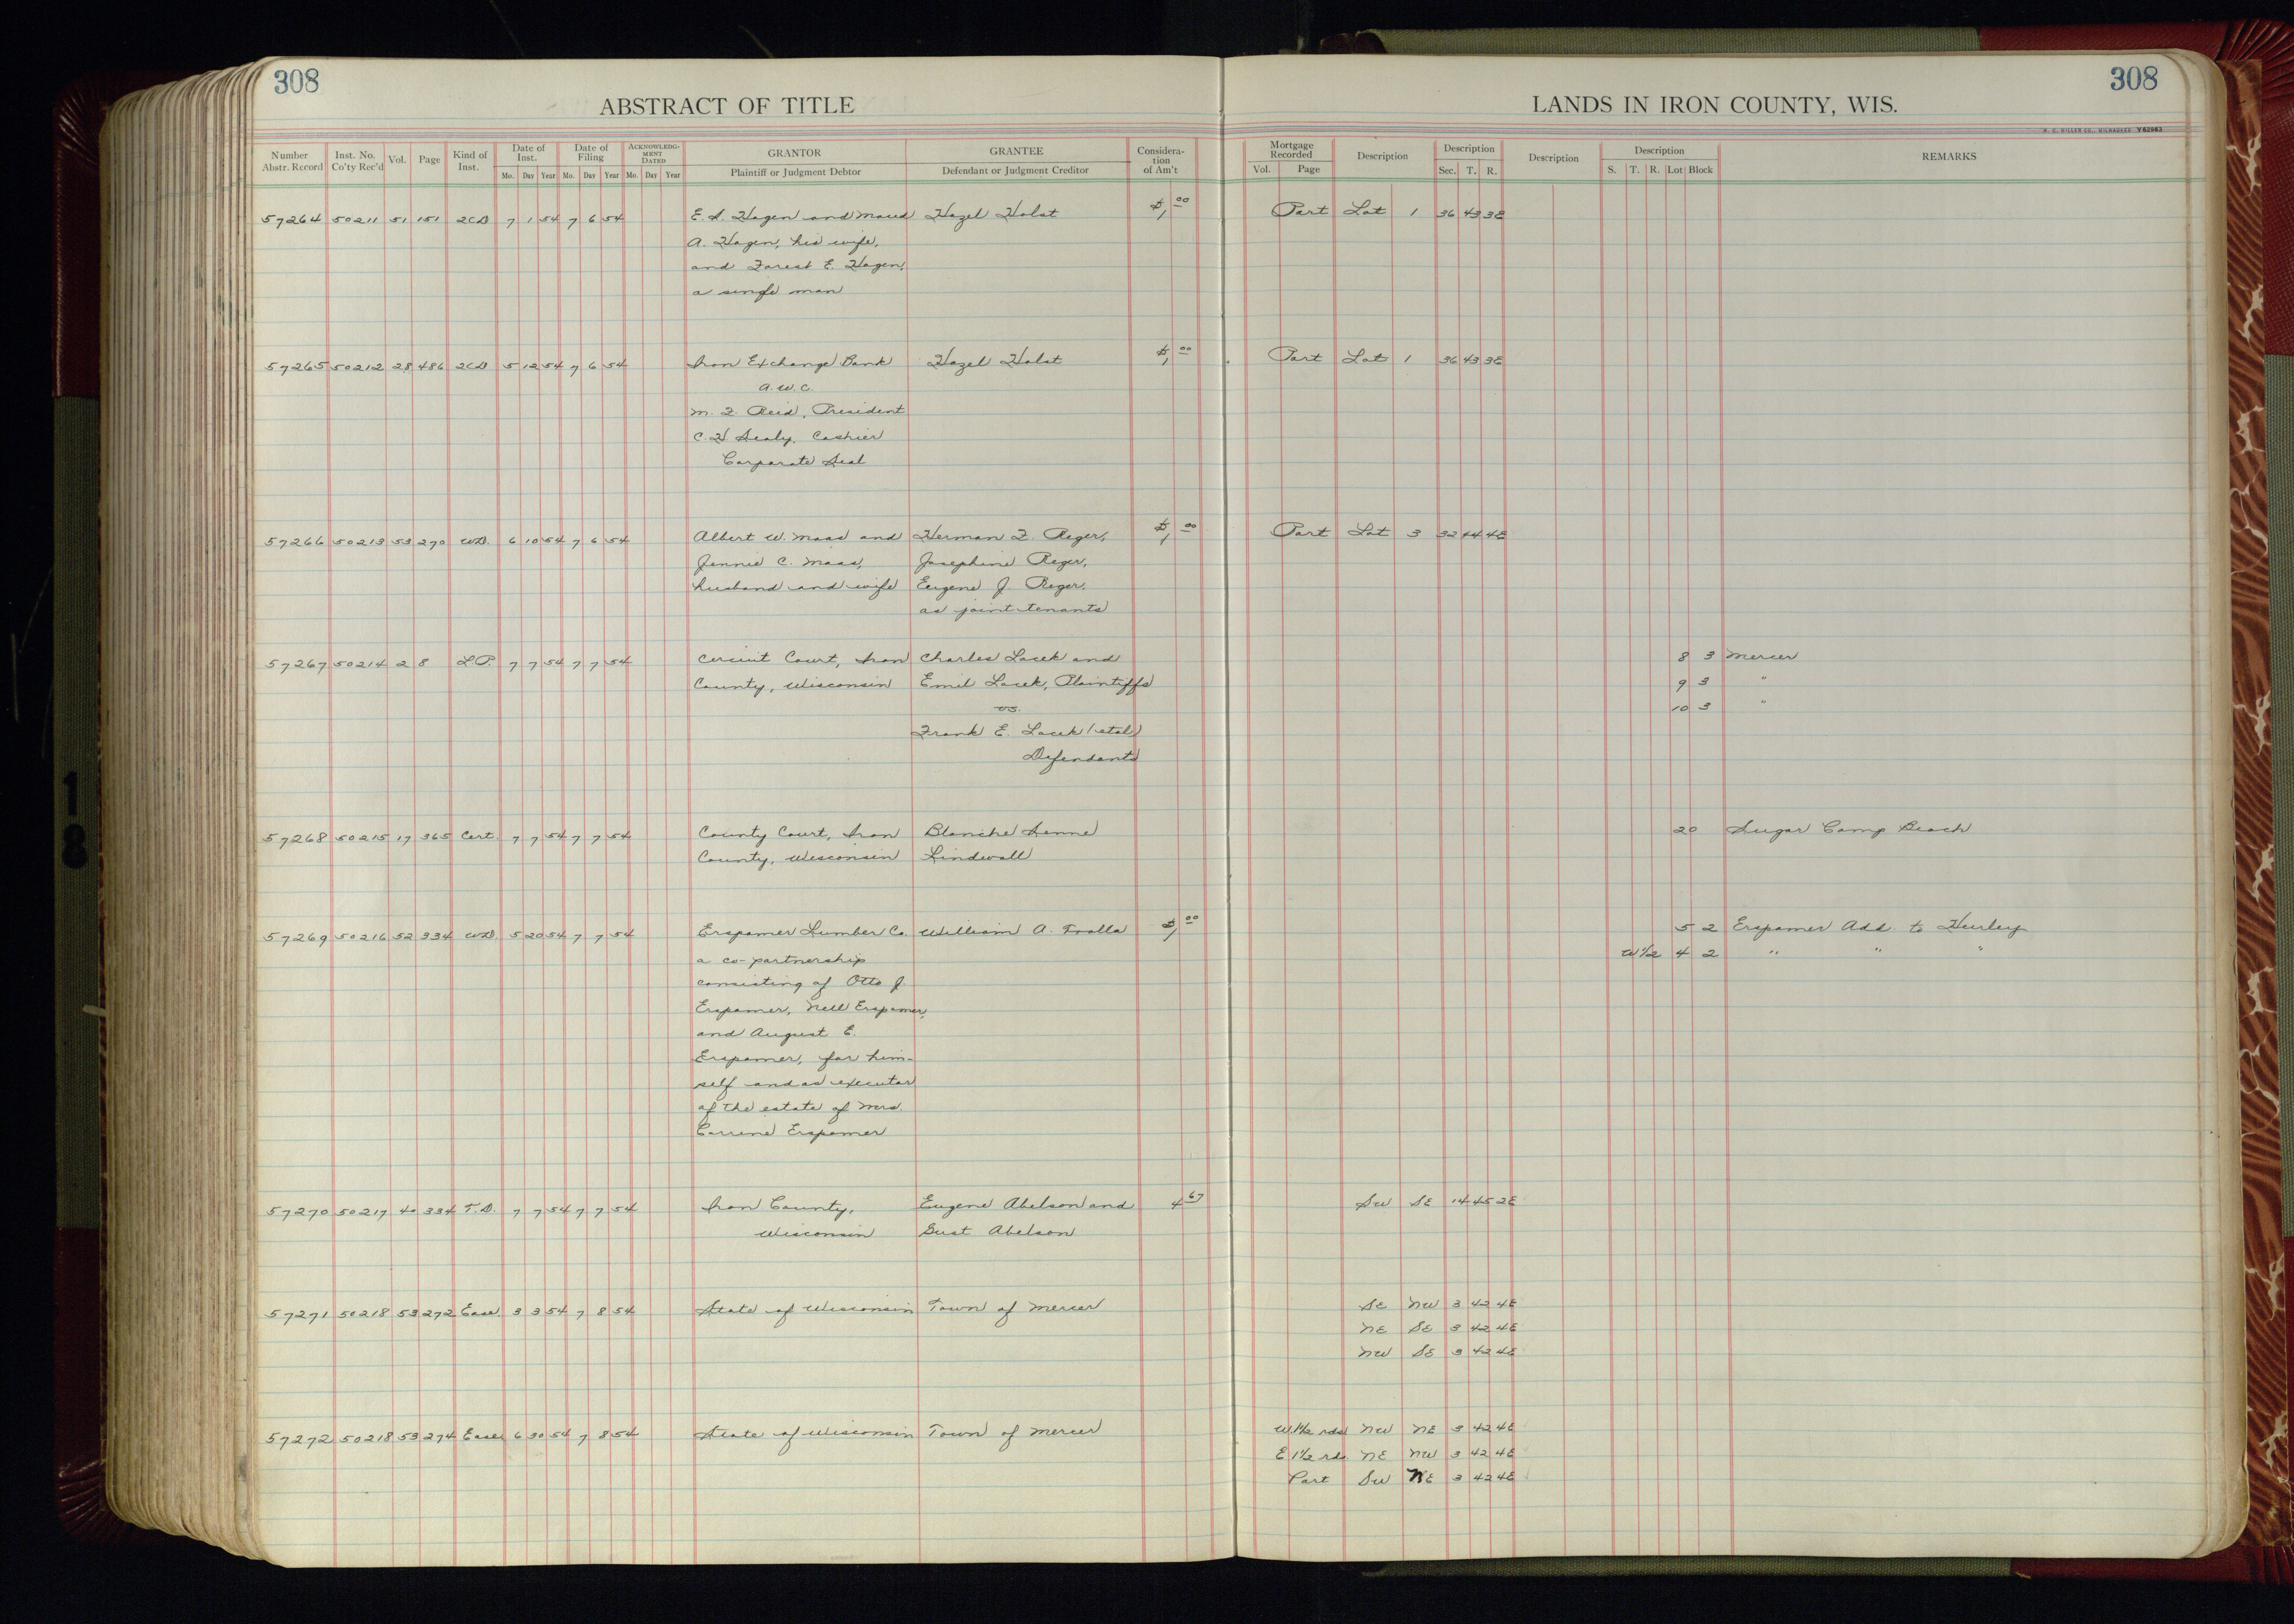 308
ABSTRACT OF TITLE
LANDS IN IRON COUNTY, WIS.
308
H. C. MILLER CO., MILWAUKEE Y62963
Number Abstr. Record Inst. No. Co'ty Rec'd Vol. Page Kind of Inst. Date of Inst. Mo. Day Year Date of Filing Mo. Day Year ACKNOWLEDGMENT DATED Mo. Day Year GRANTOR Plaintiff or Judgment Debtor GRANTEE Defendant or Judgment Creditor Consideration of Am't Mortgage Recorded Vol. Page Description Description Sec. T. R. Description Description S. T. R. Lot Block REMARKS
57264 50211 51 151 2CD 7 1 54 7 6 54 E. S. Hagen and Maud Hazel Holst $1.00 Part Lot 1 36 43 3E
A. Hagen, his wife,
and Forest E. Hagen,
a single man
57265 50212 28 486 2CD 5 12 54 7 6 54 Iron Exchange Bank Hazel Holst $1.00 Part Lot 1 36 43 3E
A. W. C.
M. F. Reid, President
C. H. Sealy, Cashier
Corporate Seal
57266 50213 53 270 WD. 6 10 54 7 6 54 Albert W. Maas and Herman F. Reger, $1.00 Part Lot 3 32 44 4E
Jennie C. Maas, Josephine Reger,
husband and wife Eugene J. Reger,
as joint tenants
57267 50214 2 8 L.P. 7 7 54 7 7 54 Circuit Court, Iron Charles Lacek and 8 3 Mercer
County, Wisconsin Emil Lacek, Plaintiffs 9 3 "
vs. 10 3 "
Frank E. Lacek (et al)
Defendants
57268 50215 17 365 Cert. 7 7 54 7 7 54 County Court, Iron Blanche Senne 20 Sugar Camp Beach
County, Wisconsin Lindwall
57269 50216 52 334 WD. 5 20 54 7 7 54 Erspamer Lumber Co. William A. Tralla $1.00 5 2 Erspamer Add. to Hurley
a co-partnership W 1/2 4 2 " " "
consisting of Otto J.
Erspamer, Nell Erspamer,
and August E.
Erspamer, for him-
self and as executor
of the estate of Mrs.
Corrine Erspamer
57270 50217 40 334 T.D. 7 7 54 7 7 54 Iron County, Eugene Abelson and 4.67 SW SE 14 45 2E
Wisconsin Gust Abelson
57271 50218 53 272 Ease. 3 3 54 7 8 54 State of Wisconsin Town of Mercer SE NW 3 42 4E
NE SE 3 42 4E
NW SE 3 42 4E
57272 50218 53 274 Ease 6 30 54 7 8 54 State of Wisconsin Town of Mercer W 1 1/2 rds NW NE 3 42 4E
E 1 1/2 rds. NE NW 3 42 4E
Part SW NE 3 42 4E
18